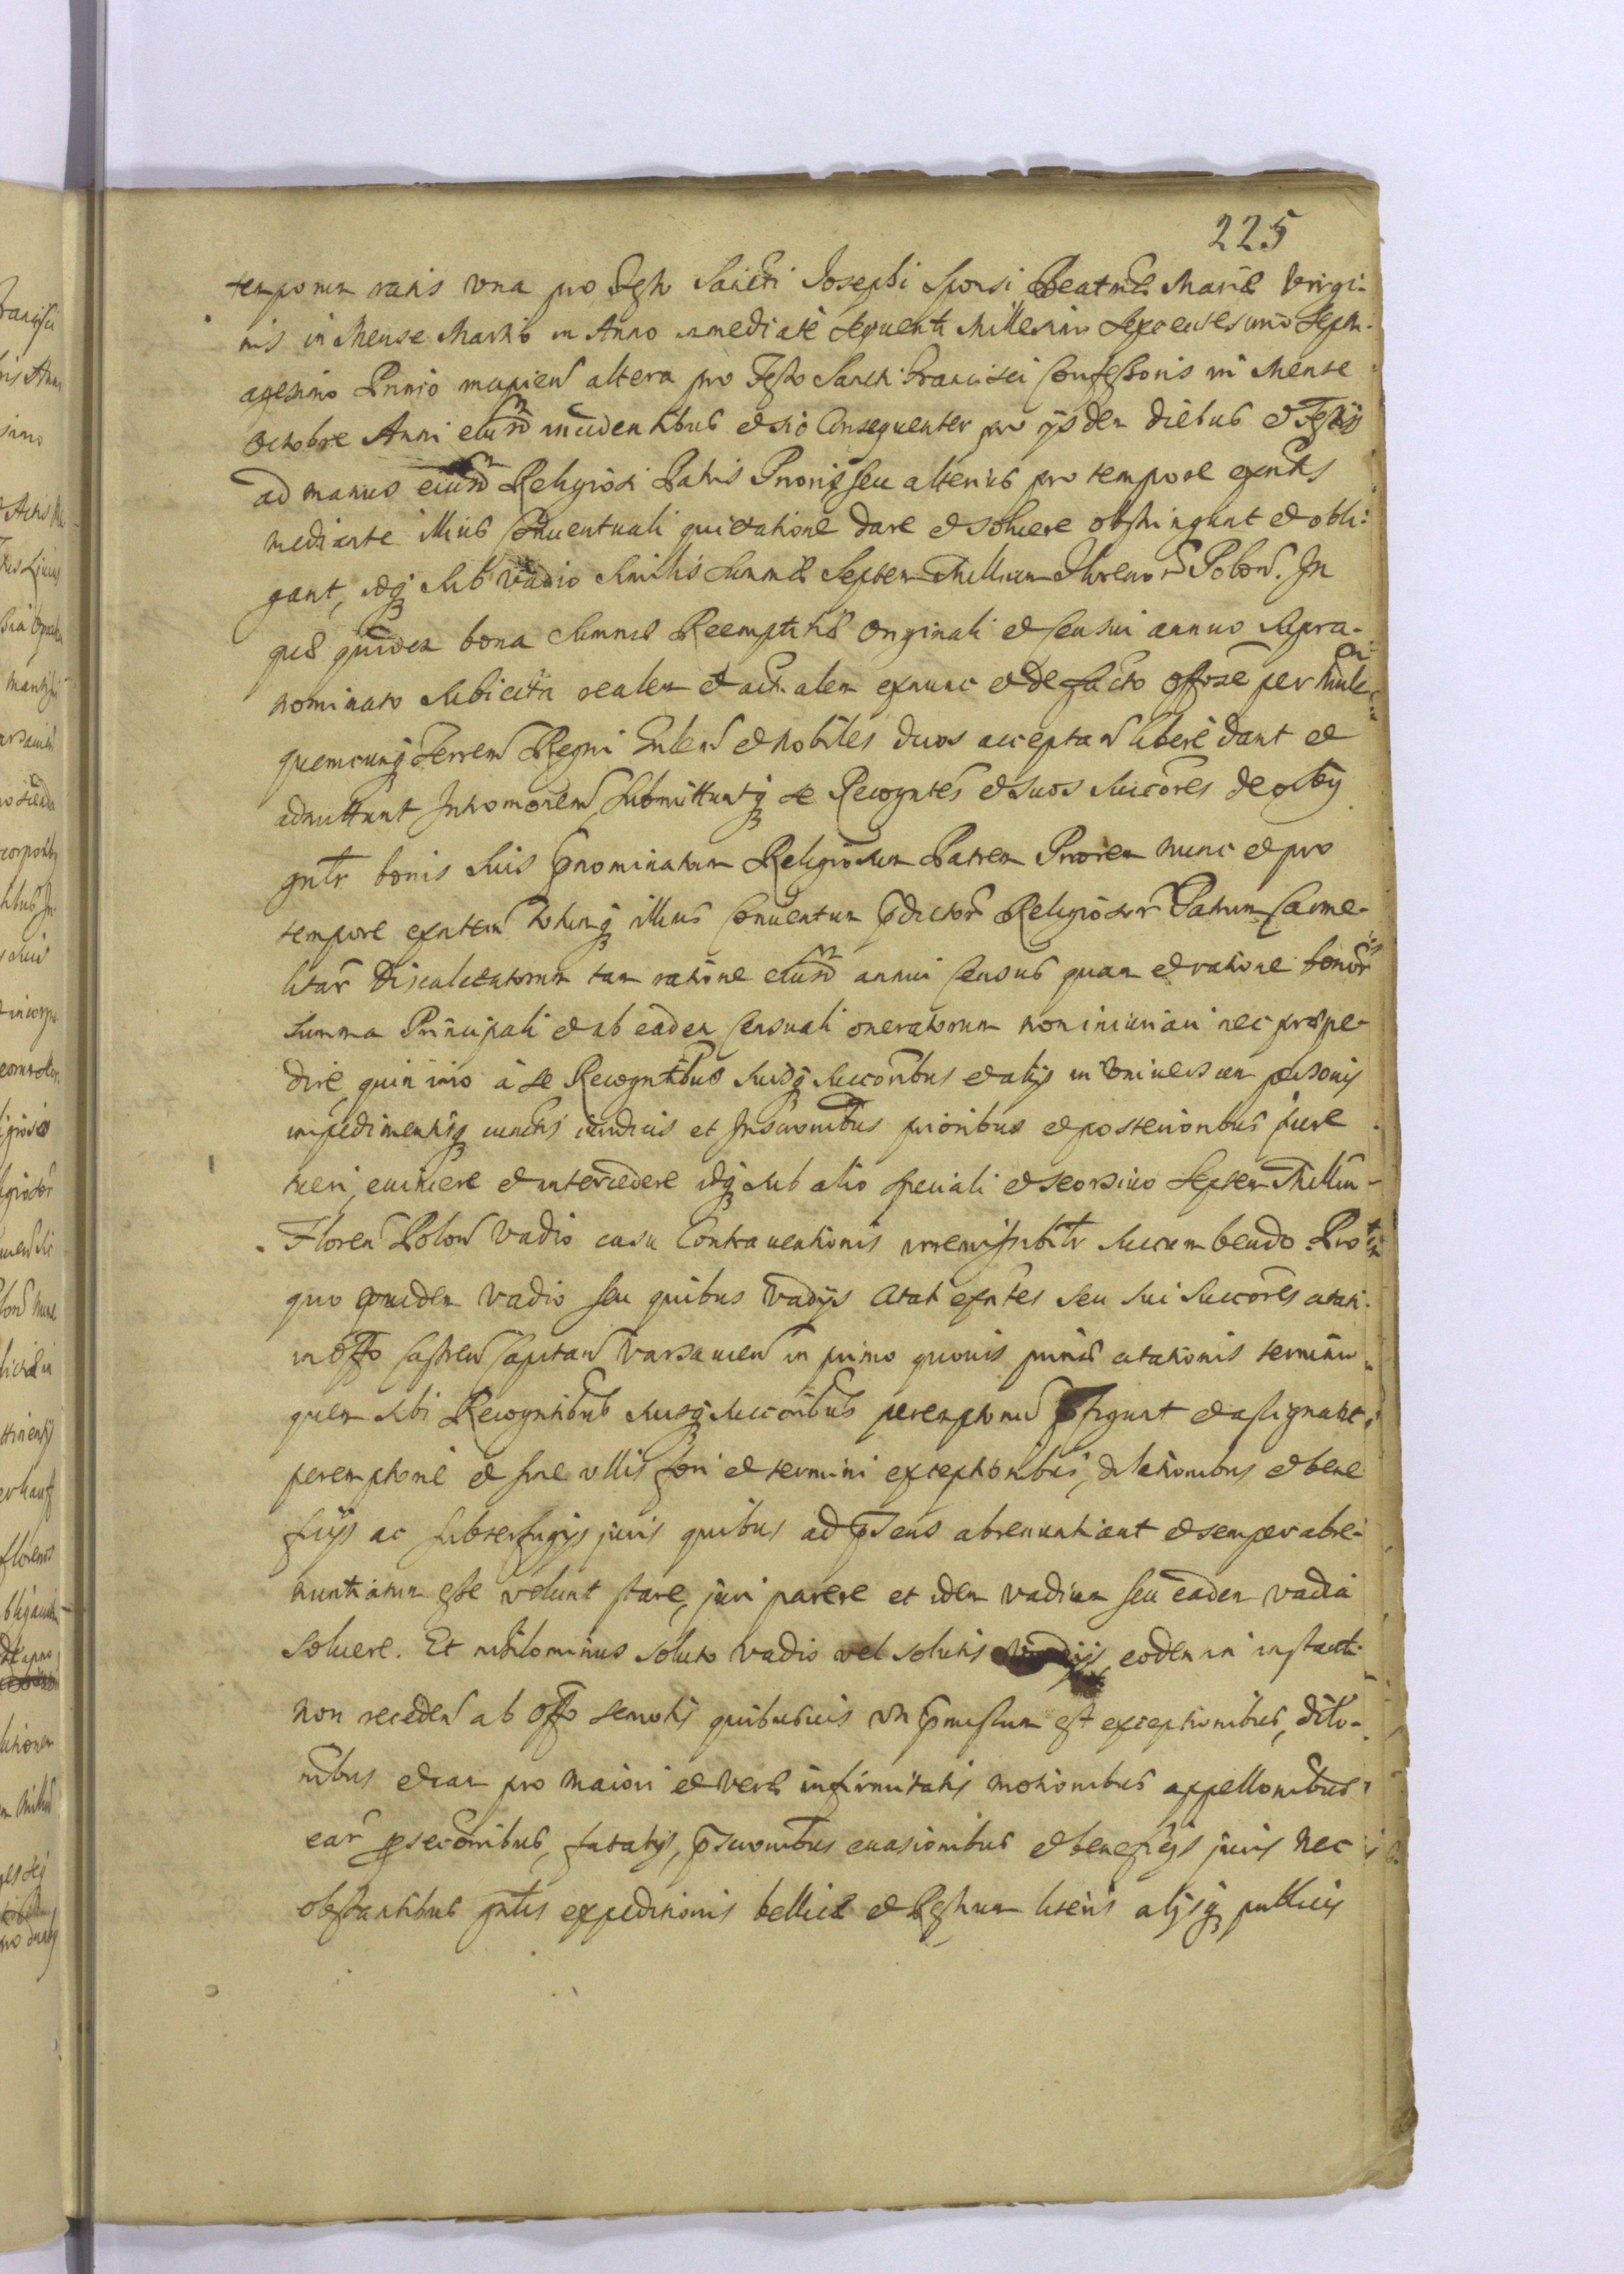 225
temporum ratis una pro Festo Sancti Josephi Sponsi Beatmæ Mariæ Virgi-
nis in Mense Martio in Anno immediate sequenti Millesimo Sexcentesimo Septu-
agesimo Primo altera pro Festo Sancti Francisci Confessoris in Mense
Octobre Anni eiusd incidentibus et sic consequenter pro ijsdem diebus et Festis
ad manus eiusd Religiosi Patris Prioris seu alterius pro tempore exntis
mediante illius Conventuali quietatione dare et solvere obstringunt et obli-
gant, idq sub vadio similis summæ Septem Millium Florenor Polon. In
quæ quidem bona summæ Reemptitiæ originali et censui annuo supra-
nominato subiecta realem et actualem exnunc et de facto offose per Mnle
quemcunq Terren Regni Gnlem et nobiles duos acceptan libere dant et
admittunt Intromonem, submittuntq se Recogntes et suos succores de
gnlr bonis suis pnominatum Religiosum Patrem Priorem nunc et pro
tempore exntem totumq illius Conventum pdictor Religiosor Patrum Carme-
litar Discalceatorum tam ratione eiusd annui census quam et ratione bonor
summa Principali et ab eadem censuali oneratorum non iniuriari nec præpe-
dire, quin imo a se Recogntibus suisq succoribus et alijs in universum personis
impedimentisq cunctis iuridicis et Inscronibus prioribus et posterioribus jure
tueri, evincere et intercedere idq sub alio speciali et seorsivo Septem Millium
Floren Polon vadio casu contraventionis irremissibilr succumbendo. Pro
quo quidem vadio seu quibus vadijs citati exntes seu sui succores citati
in Offo Castren Capitan Varsavien in primo quovis primæ citationis termino
quem sibi Recogntibus suisq succoribus peremptorium pfigunt et assignant
peremptorie et sine ullis fori et termini exceptionibus, dilationibus et bene
ficijs ac subterfugijs juris quibus ad psens abrenuntiant et semper abre-
nuntiatum esse volunt stare, juri parere et idem vadium seu eadem vadia
solvere. Et nihilominus soluto vadio vel solutis vadijs eodem in instanti
non receden ab Offo semotis quibusvis ut pmissum est exceptionibus, dilo-
nibus etiam pro maiori et veræ infirmitatis motionibus appellonibus
ear psecōnibus, fatalijs, pscronibus evasionibus et beneficijs juris nec
obstantibus gnlis expeditionis bellicæ et Restium literis alijsq publicis